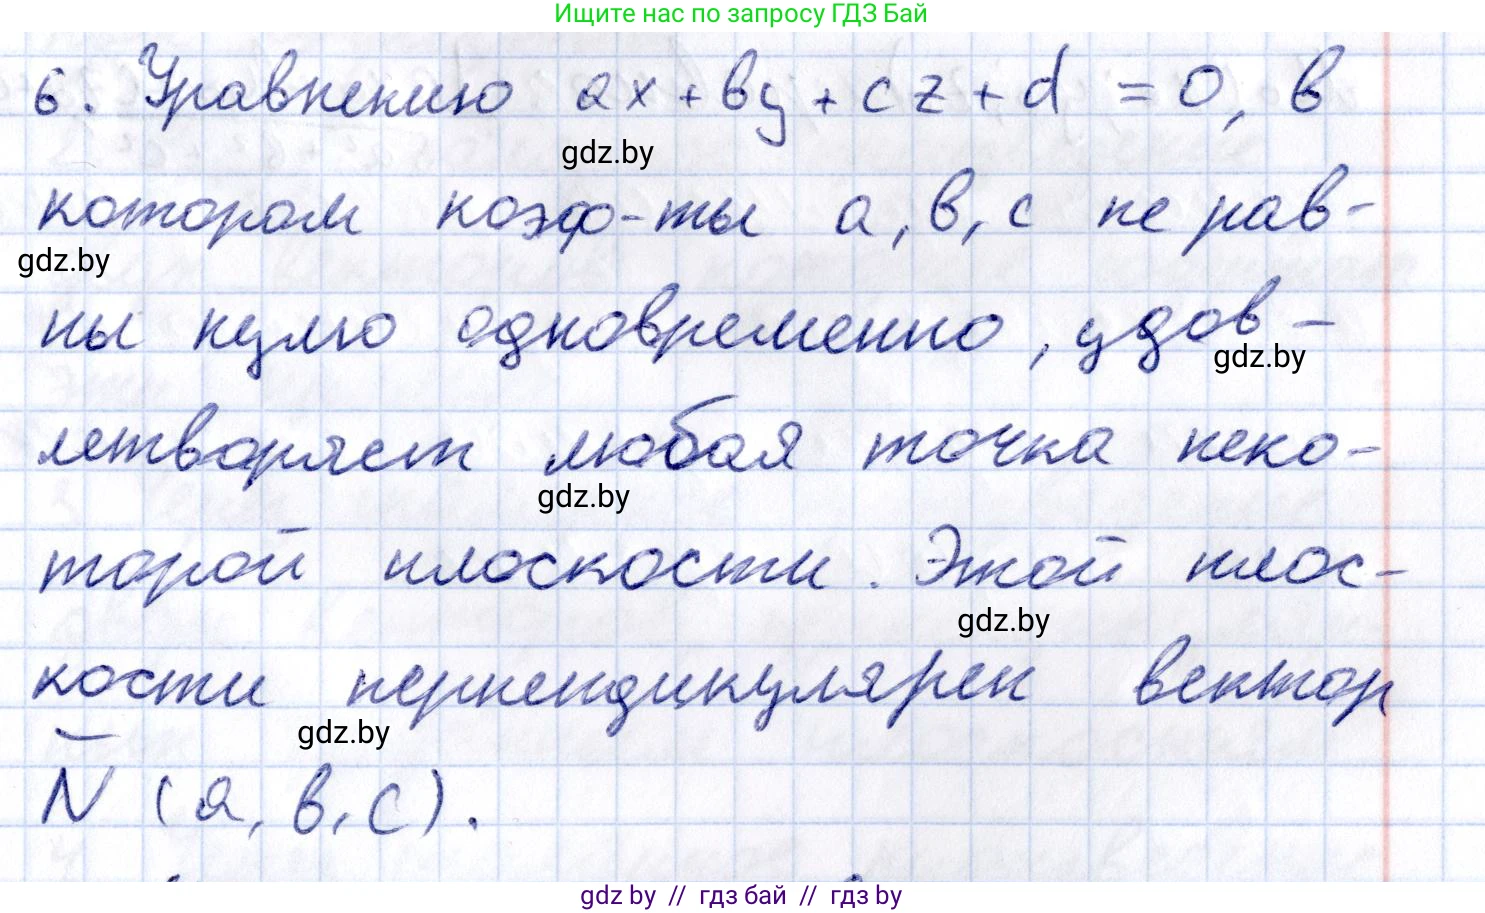 Ищите нас по запросу ГДЗ Бай
6. Уравнению ax + by + cz + d = 0, в
gdz.by
котором коэф-ты a, b, c не рав-
gdz.by
ны нулю одновременно, удов-
gdz.by
летворяет любая точка неко-
gdz.by
торой плоскости. Этой плос-
gdz.by
кости перпендикулярен вектор
gdz.by
N̅ (a, b, c).
gdz.by // гдз бай // гдз by